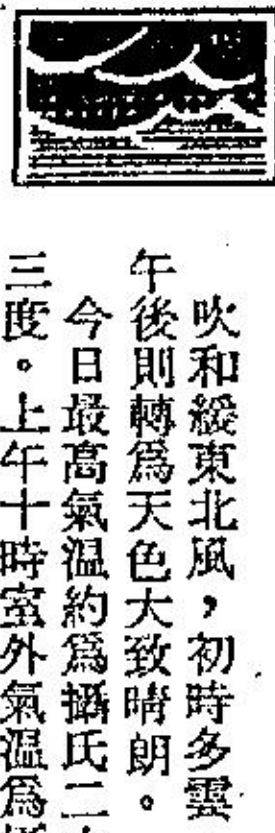 吹和緩東北風，初時多雲
午後則轉爲天色大致晴朗。
今日最高氣溫約爲攝氏二
三度。上午十時室外氣溫爲